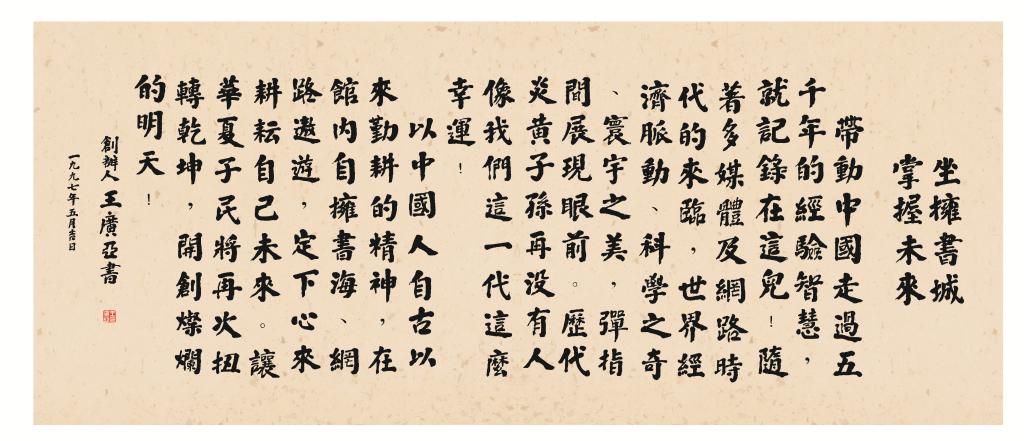 坐擁書城
掌握未來
帶動中國走過五
千年的經驗智慧，
就記錄在這兒！隨
著多媒體及網路時
代的來臨，世界經
濟脈動、科學之奇
、寰宇之美，彈指
間展現眼前。歷代
炎黃子孫再没有人
像我們這一代這麼
幸運！
以中國人自古以
來勤耕的精神，在
館内自擁書海、網
路遨遊，定下心來
耕耘自己未來。讓
華夏子民將再次扭
轉乾坤，開創燦爛
的明天！
創辦人 王廣亞書
一九九七年五月吉日